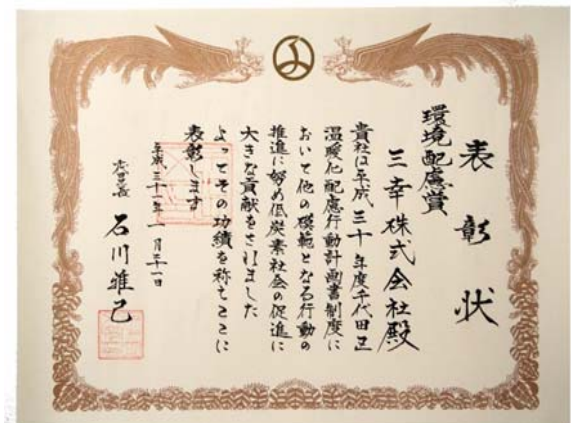 表彰状
環境配慮賞
三幸株式会社殿
貴社は平成三十年度千代田区
温暖化配慮行動計画書制度に
おいて他の模範となる行動の
推進に努め低炭素社会の促進に
大きな貢献をされました
よってその功績を称えここに
表彰します
平成三十一年一月三十一日
石川雅己